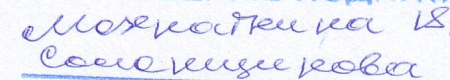 Мохнаткина 18
Солоницикова